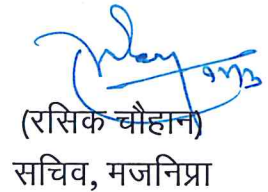 (रसिक चौहान)
सचिव, मजनिप्रा